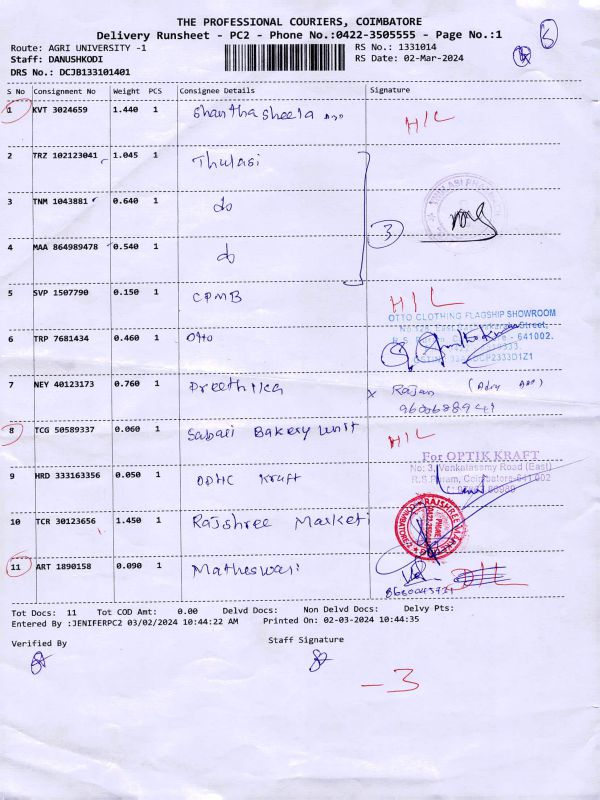 THE PROFESSIONAL COURIERS, COIMBATORE
Delivery Runsheet - PC2 - Phone No.:0422-3505555 - Page No.:1
Route: AGRI UNIVERSITY -1
RS No.: 1331014
Staff: DANUSHKODI
RS Date: 02-Mar-2024
DRS No.: DCJB133101401
S No Consignment No Weight PCS Consignee Details Signature
1 KVT 3024659 1.440 1 Shantha sheela H/L
2 TRZ 102123041 1.045 1 Thulasi
3 TNM 1043881 0.640 1 do
3
4 MAA 864989478 0.540 1 do
5 SVP 1507790 0.150 1 CPMB H/L
OTTO CLOTHING FLAGSHIP SHOWROOM
6 TRP 7681434 0.460 1 Otto
R.S. Puram, - 641002.
7 NEY 40123173 0.760 1 Preethika x Rajan
8 TCG 50589337 0.060 1 Sabari Bakery Unit H/L
For OPTIK KRAFT
No: 3, Venkalasamy Road (East)
R.S.Puram, Coimbatore-641 002
9 HRD 333163356 0.050 1 Kraft
10 TCR 30123656 1.450 1 Rajshree Marketi
11 ART 1890158 0.090 1 Matheswari
Tot Docs: 11 Tot COD Amt: 0.00 Delvd Docs: Non Delvd Docs: Delvy Pts:
Entered By :JENIFERPC2 03/02/2024 10:44:22 AM Printed On: 02-03-2024 10:44:35
Verified By Staff Signature
-3